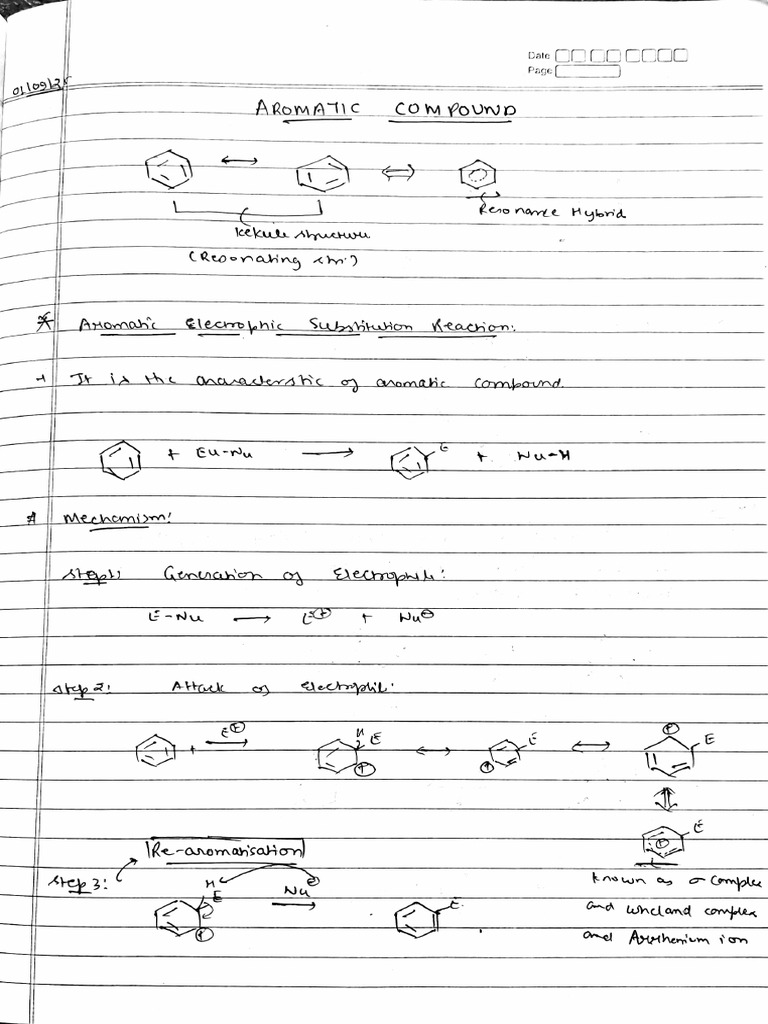 Date
Page
01/09/25
AROMATIC COMPOUND
Resonance Hybrid
Kekule structure
(Resonating str.)
* Aromatic Electrophic Substitution Reaction:
→ It is the characterstic of aromatic compound.
+ Eu-Nu → E + Nu-H
* Mechanism:
Step1: Generation of Electrophile:
E-Nu → E⊕ + Nu⊖
Step 2: Attack of Electrophile:
+ E⊕ → H E ⊕ ↔ E ⊕ ↔ ⊕ E
⊕ E
Re-aromatisation
Known as σ complex
Step 3: H E ⊕ Nu⊖ → E
and Wheland complex
and Arrhenium ion